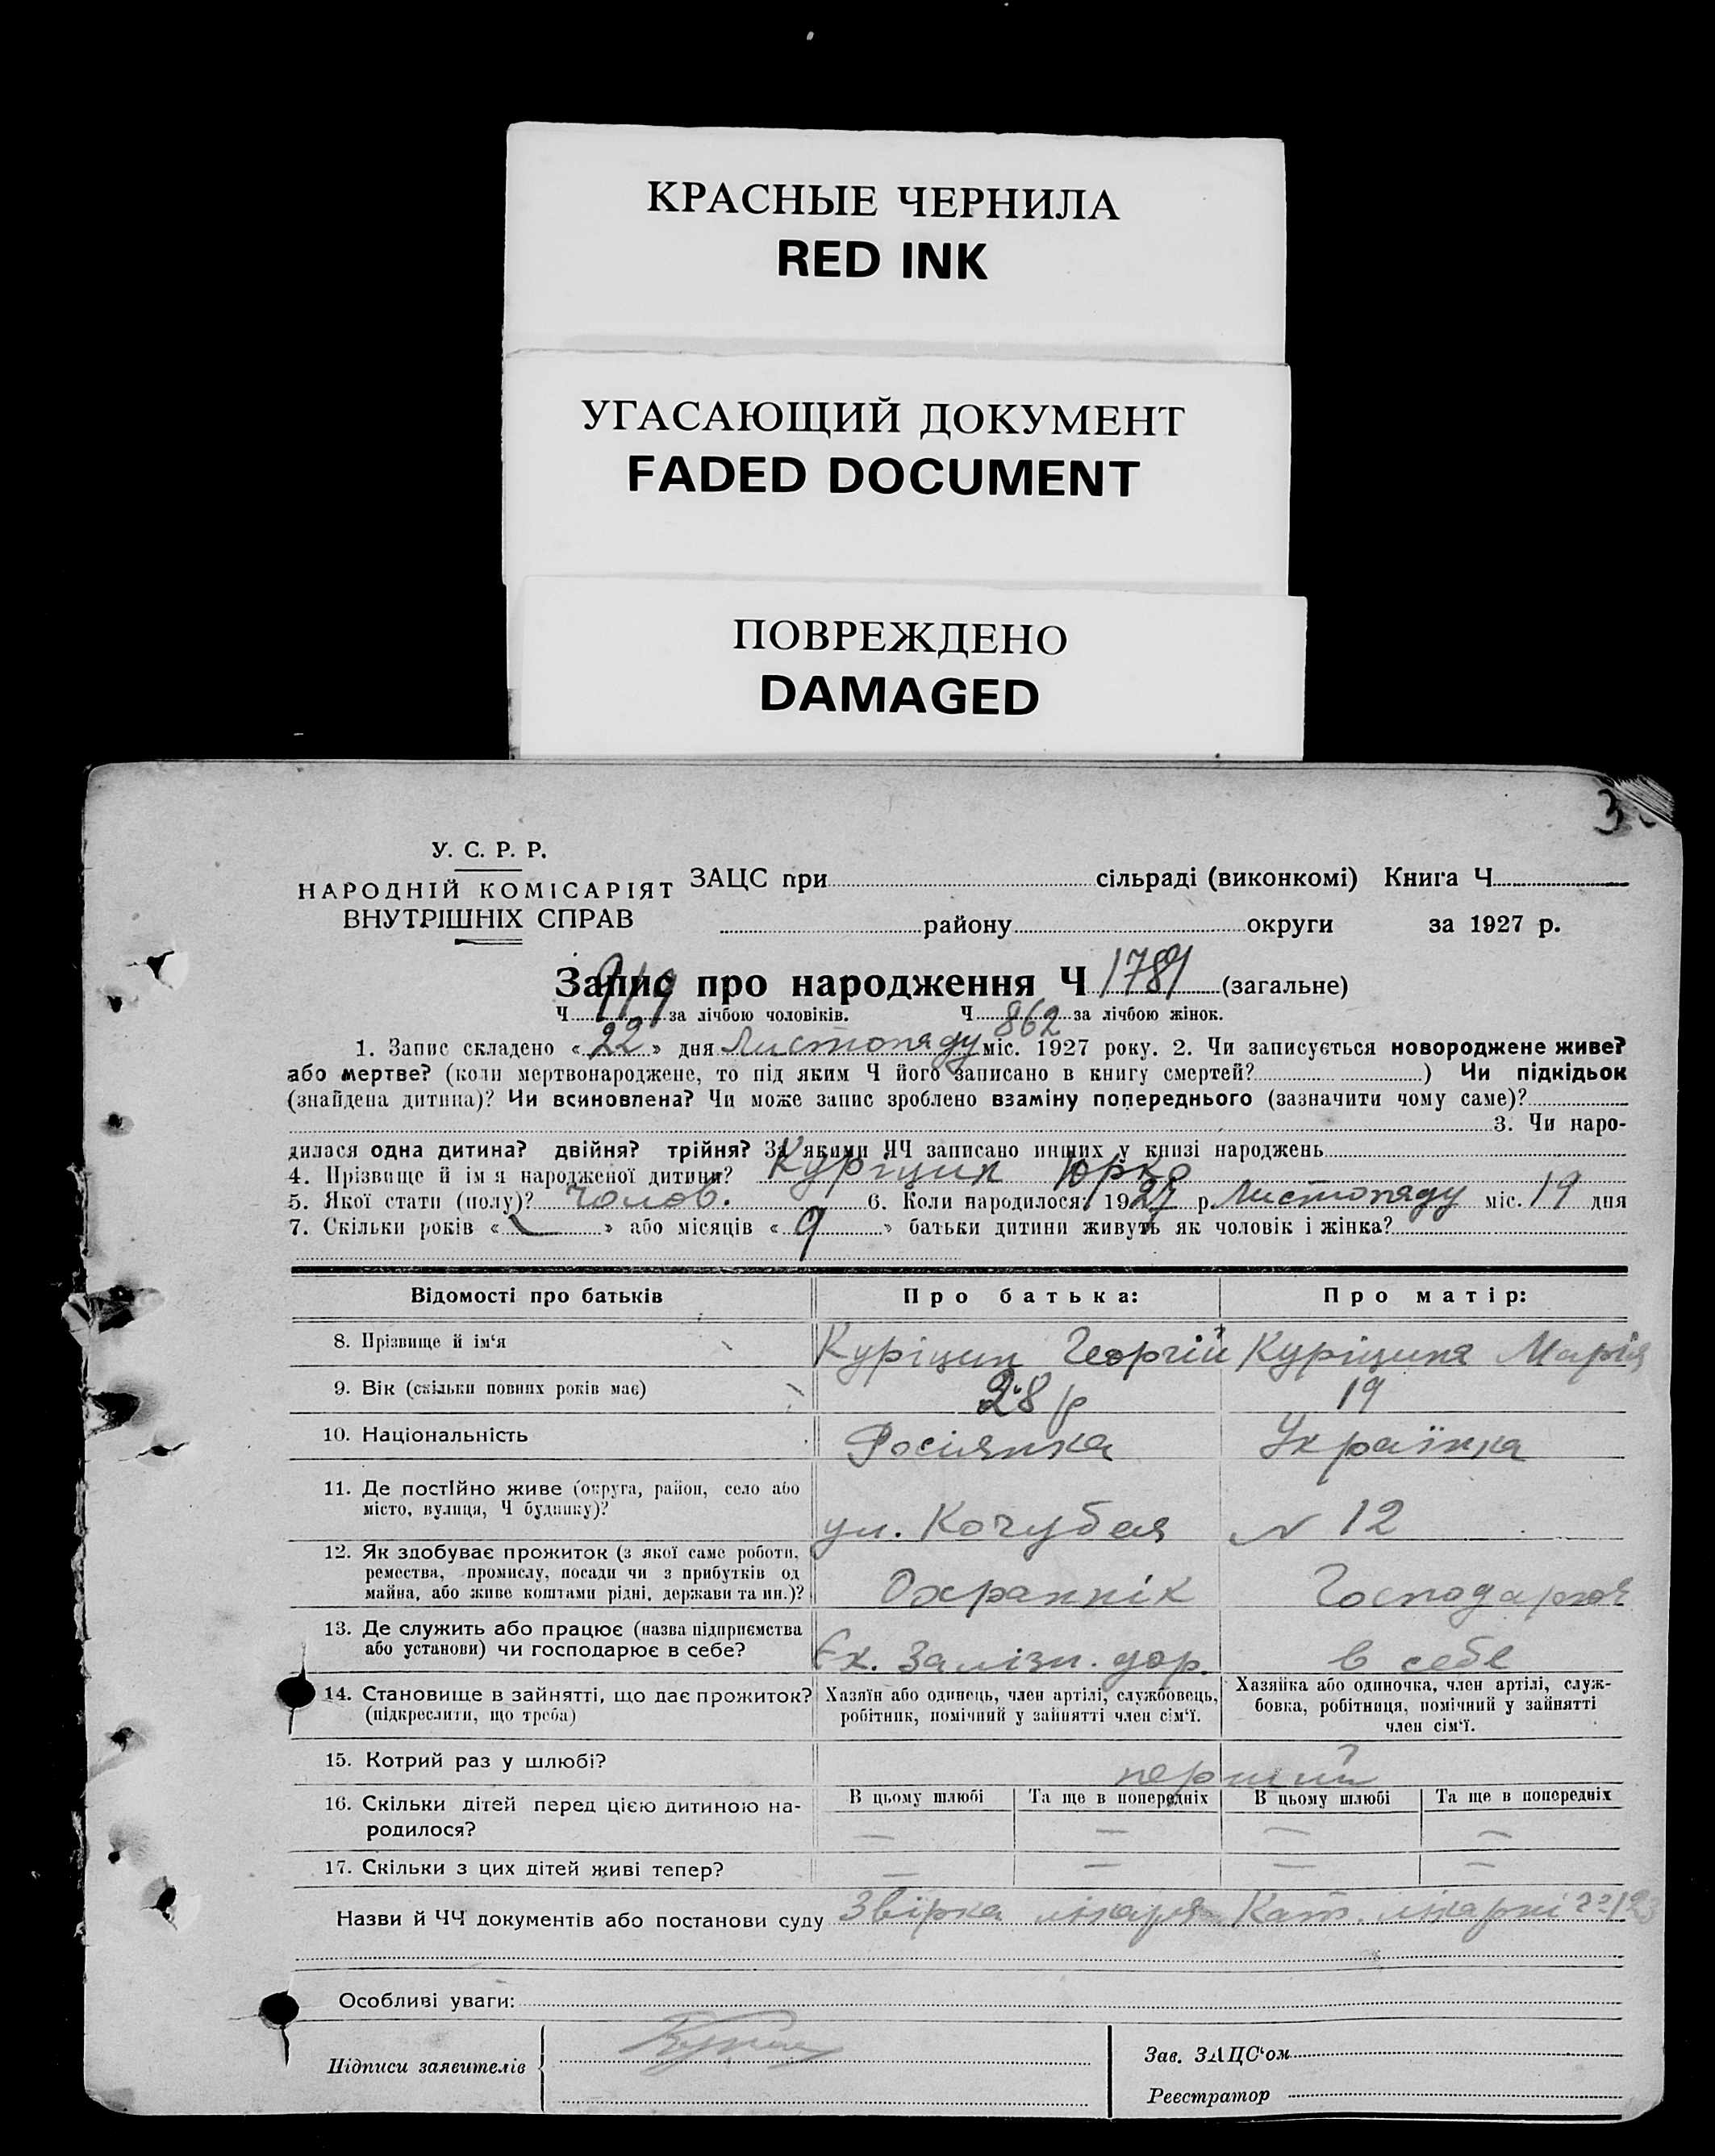 КРАСНЫЕ ЧЕРНИЛА
RED INK
УГАСАЮЩИЙ ДОКУМЕНТ
FADED DOCUMENT
ПОВРЕЖДЕНО
DAMAGED
3
У. С. Р. Р.
НАРОДНІЙ КОМІСАРІЯТ
ВНУТРІШНІХ СПРАВ
ЗАЦС при сільраді (виконкомі) Книга Ч.
району округи за 1927 р.
Запис про народження Ч 1781 (загальне)
Ч. 919 за лічбою чоловіків. Ч. 862 за лічбою жінок.
1. Запис складено « 22 » дня Листопаду міс. 1927 року. 2. Чи записується новороджене живе?
або мертве? (коли мертвонароджене, то під яким Ч його записано в книгу смертей? ) Чи підкідьок
(знайдена дитина)? Чи всиновлена? Чи може запис зроблено взаміну попереднього (зазначити чому саме)?
3. Чи наро-
дилася одна дитина? двійня? трійня? За якими ЧЧ записано инших у книзі народжень
4. Прізвище й ім'я народженої дитини? Куріцин Юрко
5. Якої стати (полу)? чолов. 6. Коли народилося: 1927 р. Листопаду міс. 19 дня
7. Скільки років « » або місяців « 9 » батьки дитини живуть як чоловік і жінка?
Відомості про батьків Про батька: Про матір:
8. Прізвище й ім'я Куріцин Георгій Куріцина Марія
9. Вік (скільки повних років має) 28 р 19
10. Національність Росіянка Українка
11. Де постійно живе (округа, район, село або
місто, вулиця, Ч будинку)? ул. Кочубея N 12
12. Як здобуває прожиток (з якої саме роботи,
ремества, промислу, посади чи з прибутків од
майна, або живе коштами рідні, держави та ин.)? Охраннік
13. Де служить або працює (назва підприємства
або установи) чи господарює в себе? Єк. Залізн. дор. в себе
14. Становище в зайнятті, що дає прожиток?
(підкреслити, що треба)
Хазяїн або одинець, член артілі, службовець,
робітник, помічний у зайнятті член сім'ї.
Хазяйка або одиночка, член артілі, служ-
бовка, робітниця, помічний у зайнятті
член сім'ї.
15. Котрий раз у шлюбі? перший
16. Скільки дітей перед цією дитиною на-
родилося?
В цьому шлюбі Та ще в попередніх В цьому шлюбі Та ще в попередніх
— — — —
17. Скільки з цих дітей живі тепер? — — — —
Назви й ЧЧ документів або постанови суду Звірка лікаря Кат. лікарні
Особливі уваги:
Підписи заявителів
Зав. ЗАЦС'ом
Реєстратор